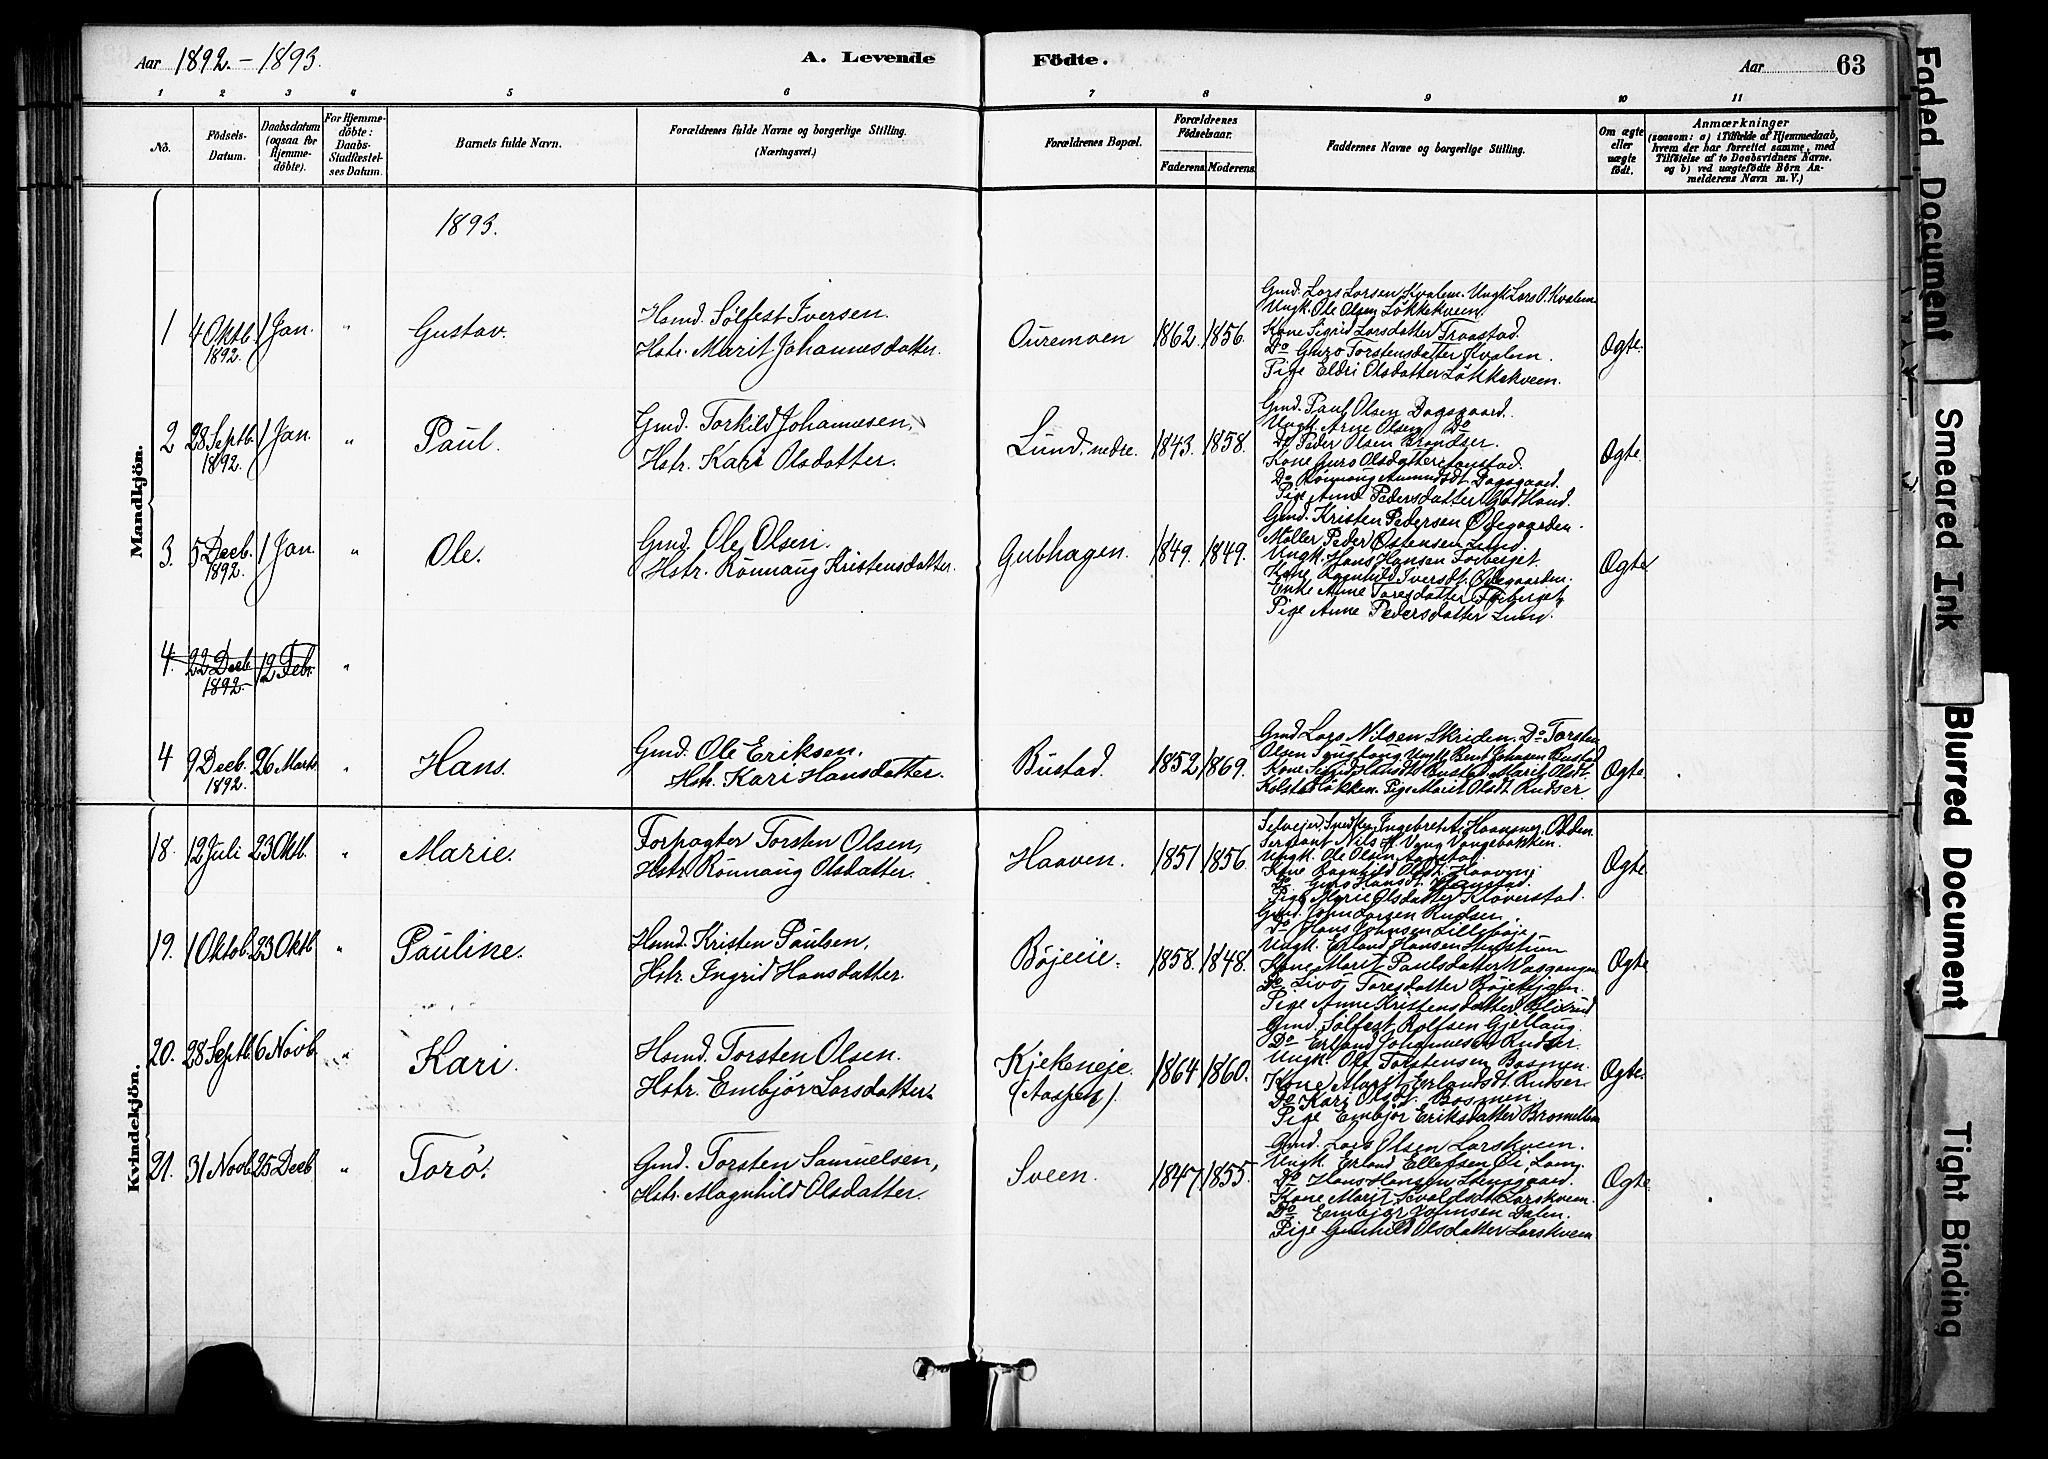 Aar 1892. - 1893. A. Levende Födte. Aar 63
1 2 3 4 5 6 7 8 9 10 11
No. Födsels-Datum. Daabsdatum (ogsaa for Hjemme-döbte). For Hjemme-döbte: Daabs-Stadfæstel-ses Datum. Barnets fulde Navn. Forældrenes fulde Navne og borgerlige Stilling. (Næringsvei.) Forældrenes Bopæl. Forældrenes Födselsaar. Faderens Moderens Faddernes Navne og borgerlige Stilling. Om ægte eller uægte födt. Anmærkninger
(saasom: a) i Tilfælde af Hjemmedaab, hvem der har forrettet samme, med Tilföielse af to Daabsvidners Navne. og b) ved uægtefödte Börn An-melderens Navn m. V.)
1893.
Mandkjön.
1 4 Oktb. 1892. 1 Jan. " Gustav. Hsmd. Sölfest Iversen.
Hstr. Marit Johannesdatter.
Ouremoen 1862. 1856.
Gmd. Lars Larsen Kvalem. Ungk. Lars O. Kvalem
Ungk. Ole Olsen Lökkekveen.
Kone Sigrid Larsdatter Traastad.
Do Guro Torstensdatter Kvalem.
Pige Eldri Olsdatter Lökkekveen.
Ægte.
2 28 Septb. 1892. 1 Jan. " Paul. Gmd. Torkild Johannesen,
Hstr. Kari Olsdatter.
Lund, nedre. 1843. 1858.
Gmd. Paul Olsen Dagsgaard.
Ungk. Arne Olsen Do
Do Peder Olsen Brandser.
Kone Guro Olsdatter
Do Rönnaug Amundsdt. Dagsgaard.
Pige Anne Pedersdatter
Ægte.
3. 5 Decb. 1892. 1 Jan. " Ole. Gmd. Ole Olsen.
Hstr. Rönnaug Kristensdatter.
Gubhagen. 1849. 1849.
Gmd. Kristen Pedersen Ödegaarden.
Möller Peder Östensen Lund.
Ungk. Hans Hansen Forberget.
Kone Ragnhild Iversdt. Ödegaarden.
Enke Anne Toresdatter Forberget
Pige Anne Pedersdatter Lund.
Ægte
4. 22 Decb 1892. 12 Febr. "
4 9 Decb. 1892. 26 Marts " Hans. Gmd. Ole Eriksen.
Hstr. Kari Hansdatter.
Bustad. 1852 1869.
Gmd Lars Nilsen Skriden. Do Torsten
Olsen Ungk. Johnsen Bustad
Kone Sigrid Hansdt. Bustad. Marit Olsdt.
Pige Marit Olsdt. Rudser
Ægte.
Kvindekjön.
18. 12 Juli 23 Oktb. " Marie. Forpagter Torsten Olsen,
Hstr. Rönnaug Olsdatter.
Haaven. 1851 1856
Ingebret A. Odden.
Sergeant Nils H. Vang Vangebakken.
Ungk. Ole Olsen
Kone Ragnhild Olsdt. Haaven.
Do Guro Hansdt.
Pige Marie Olsdatter Klöverstad.
Ægte
19. 1 Oktob. 23 Oktb " Pauline. Hsmd. Kristen Paulsen,
Hstr. Ingrid Hansdatter.
Böjeeie. 1858. 1848.
Gmd. John Larsen Rudsen
Do Hans Johnsen Lilleböje
Ungk. Erland Hansen
Kone Marit Paulsdatter
Do Livö Toresdatter Böjehygen.
Pige Anne Kristensdatter Blixrud
Ægte
20. 28 Septb. 6 Novb. " Kari. Hsmd. Torsten Olsen.
Hstr. Embjör Larsdatter.
Kjekeneje. (Aaspen). 1864 1860.
Gmd. Sölfest Rolfsen Gjellaug.
Do Erland Johannesen Rudser.
Ungk. Ole Torstensen Bosmen.
Kone Marit Erlandsdt. Rudser
Do Kari Olsdt. Bosmen.
Pige Embjör Eriksdatter
Ægte.
21. 31 Novb. 25 Decb " Torö. Gmd. Torsten Samuelsen,
Hstr. Magnhild Olsdatter.
Sveen. 1847 1855.
Gmd. Lars Olsen Larskveen.
Ungk. Erland Ellefsen Öi, Lom.
Do Hans Hansen Steingaard.
Kone Marit Sevaldsdt. Larskveen.
Do Embjör Johnsen Dalen.
Pige Gunhild Olsdatter Larskveen
Ægte
Faded Document
Smeared Ink
Blurred Document
Tight Binding